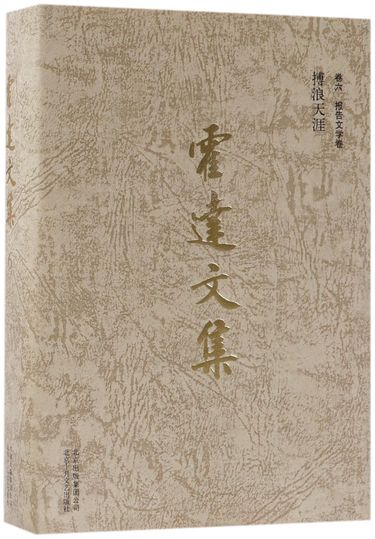 霍达文集
卷六 报告文学卷
搏浪天涯
霍達文集
北京出版集团公司
北京十月文艺出版社